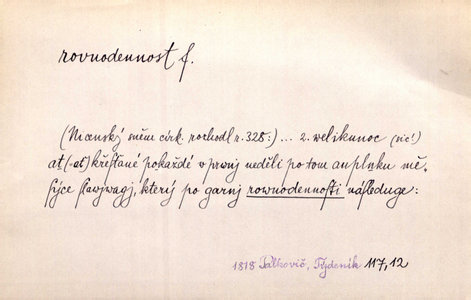 rovnodennost f.
(Nicenský sněm cirk. rozhodl r. 325:) ... 2. welikunoc (sic!)
ať (-ať) křestané pokaždé v prwnj neděli po tom auplnku mě-
sýce slawjwagj, který po garnj rownodennosti následuge:
1818 Palkovič, Týdeník 117,12